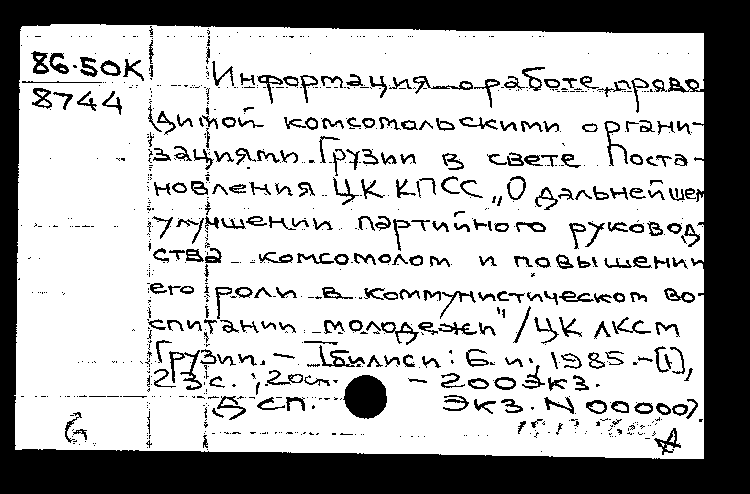 86.50К
8744
Информация о работе, прово
димой комсомольскими органи-
зациями Грузии в свете Поста-
новления ЦК КПСС „О дальнейшем
улучшении партийного руковод
ства комсомолом и повышении
его роли в коммунистическом во-
спитании молодежи" / ЦК ЛКСМ
Грузии. – Тбилиси: Б.и., 1985. – [1],
23 с.; 20 см. – 200 экз.
Дсп. Экз. N 000007.
G